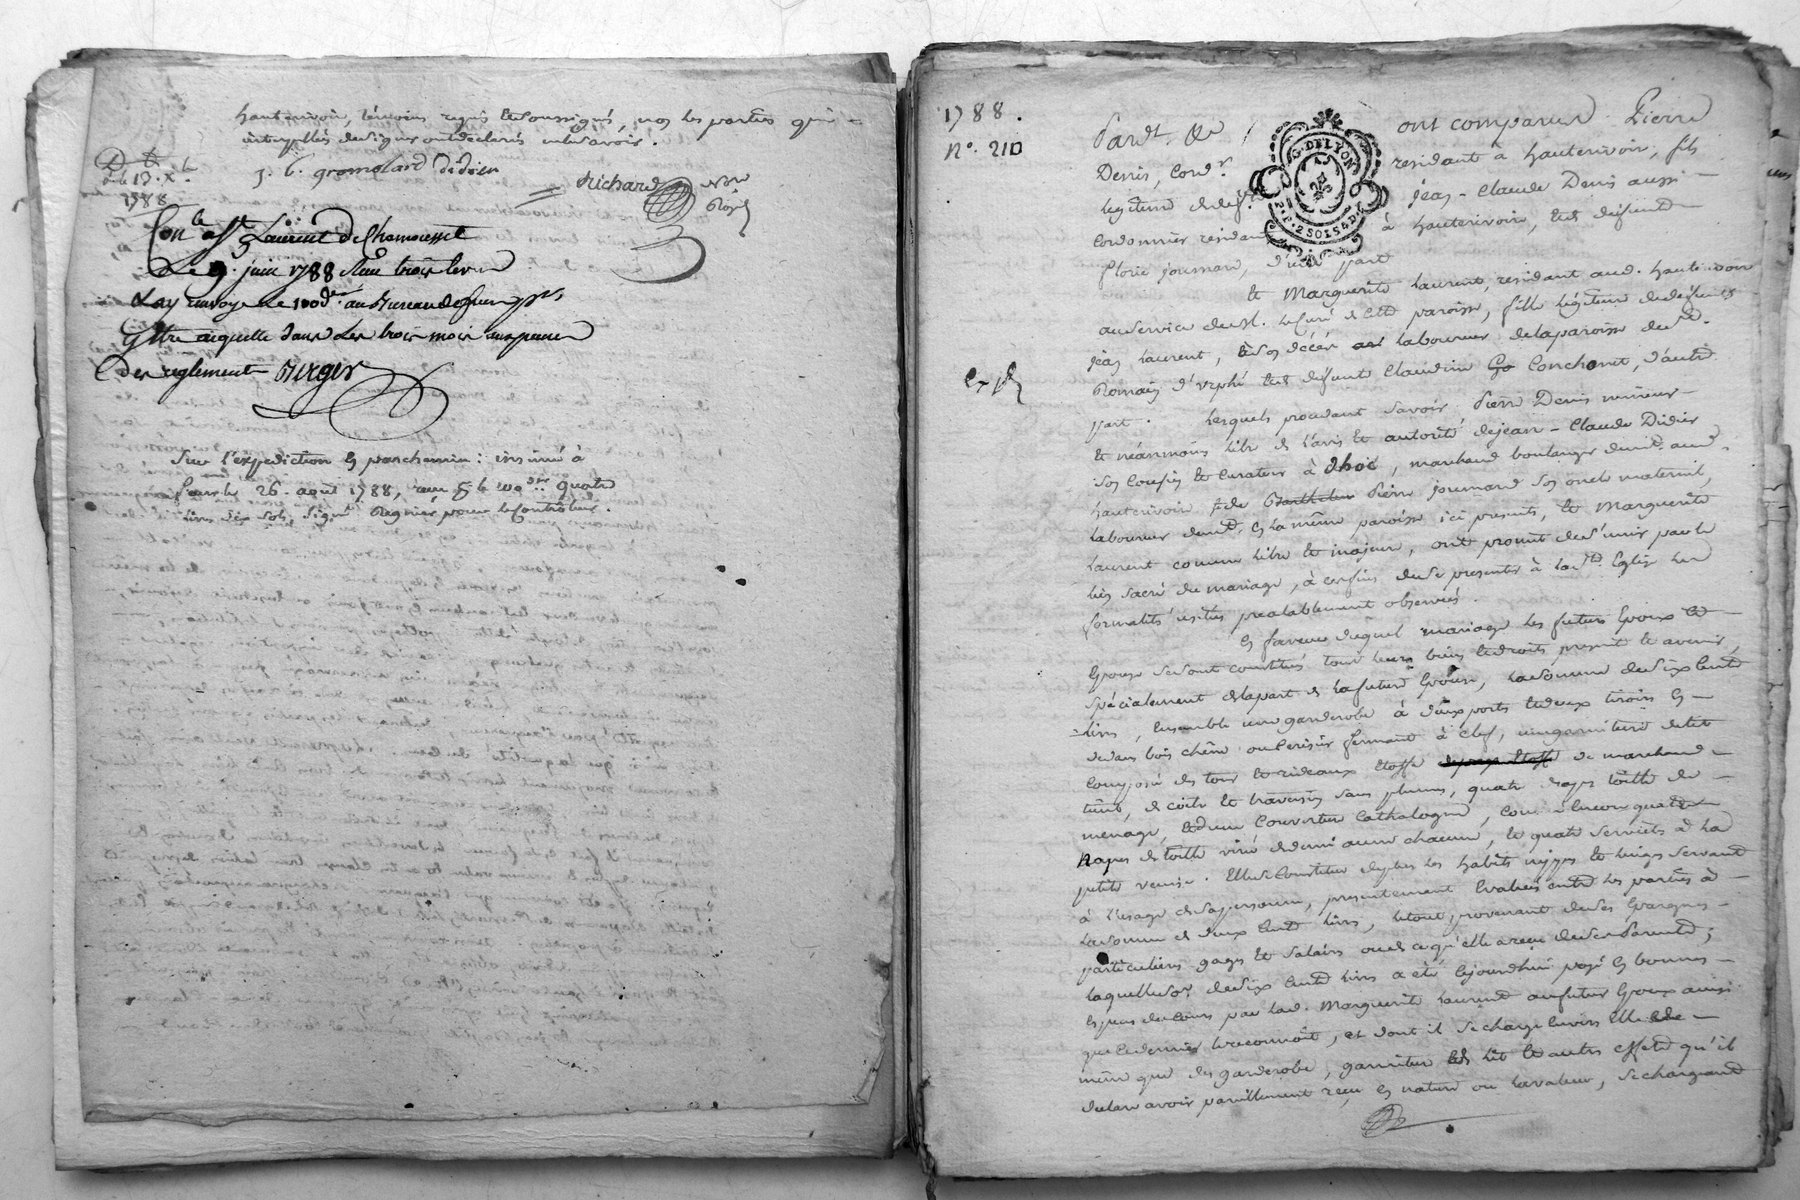 hauterivoir, témoins requis et soussignés, non les parties qui =
interpellés de signer ont déclarés ne le savoir.
D. t.
du 19. Xb.
1788
J. C. Richard Not. Royal
Con.lé à St. Laurent de Chamousset
Le 9. juin 1788 Reçu trois livres
Lay renvoyé le 100.d. au Bureau de
Etre aquetté dans les trois mois sous peine
des reglement Berger
Sur l'expedition en parchemin: insinué à
26. août 1788, reçu quatre
livres dix sols, Signé Regnier pour le Controleur.
1788.
N°. 210
Pard.t &a ont comparus Pierre
Denis, Cord.r residant à hauterivoir, fils
légitime de def.t Jean-Claude Denis aussi
Cordonnier residant à hauterivoir, et de defunte
florie journan, d'une part
G. DE LYON
2 SO 15 D
Et Marguerite Laurent, residant aud. hauterivoir
au service de M. le Curé de lad. paroisse, fille légitime de defunts
Jean Laurent, à son décés laboureur de la paroisse de St.
Romain d'urphé et de defunte Claudine Conchonet, d'autre
part. Lesquels procedant savoir Pierre Denis mineur
Exp.
et néanmoins libre de l'avis et autorité de jean-Claude Didier
son Cousin et curateur à dhoc, marchand boulanger demt. aud.
hauterivoir et de Pierre journand son oncle maternel,
laboureur demt. en la même paroisse ici presents, et Marguerite
Laurent comme libre et majeure, ont promit de s'unir par le
lien sacré du mariage, à ces fins de se presenter à la Ste. Eglise les
formalités usitées prealablement observées.
En faveur duquel mariage les futurs Epoux et
Epouse se sont constitués tous leurs biens et droits present et avenir,
Spécialement de la part de la future Epouse, la somme de six Cents
livres, Ensemble une garderobe à deux portes et deux tiroirs en
dedans bois chêne ou Cerisier fermant à clef, une garniture de lit
Composée de tour et rideaux Etoffe de marchand
teint, de coite et traversin sans plumes, quatre draps toille de
menage, et d'une Couverture Cathalogne, comme Encore quatre
Napes de toille vire de demi aune chacune, et quatre serviette à la
petite venise. Elle se Constitue de plus les habits nippes et linges servant
à l'usage de sa personne, presentement Evalués entre les parties à
la somme de deux Cents livres, le tout provenant de ses Epargnes
particulieres gages et Salaires ou de ce qu'elle a reçu de ses Parents;
laquelle so.e de six Cents livres a été cejourdhui payé en bonnes
Espèces de Cours par lad. Marguerite Laurent au futur Epoux ainsi
que ce dernier le reconnoit, et dont il se charge Envers Elle de
même que des garderobe, garniture de lit et autres effets qu'il
declare avoir pareillement reçu en nature ou la valeur, se chargeant